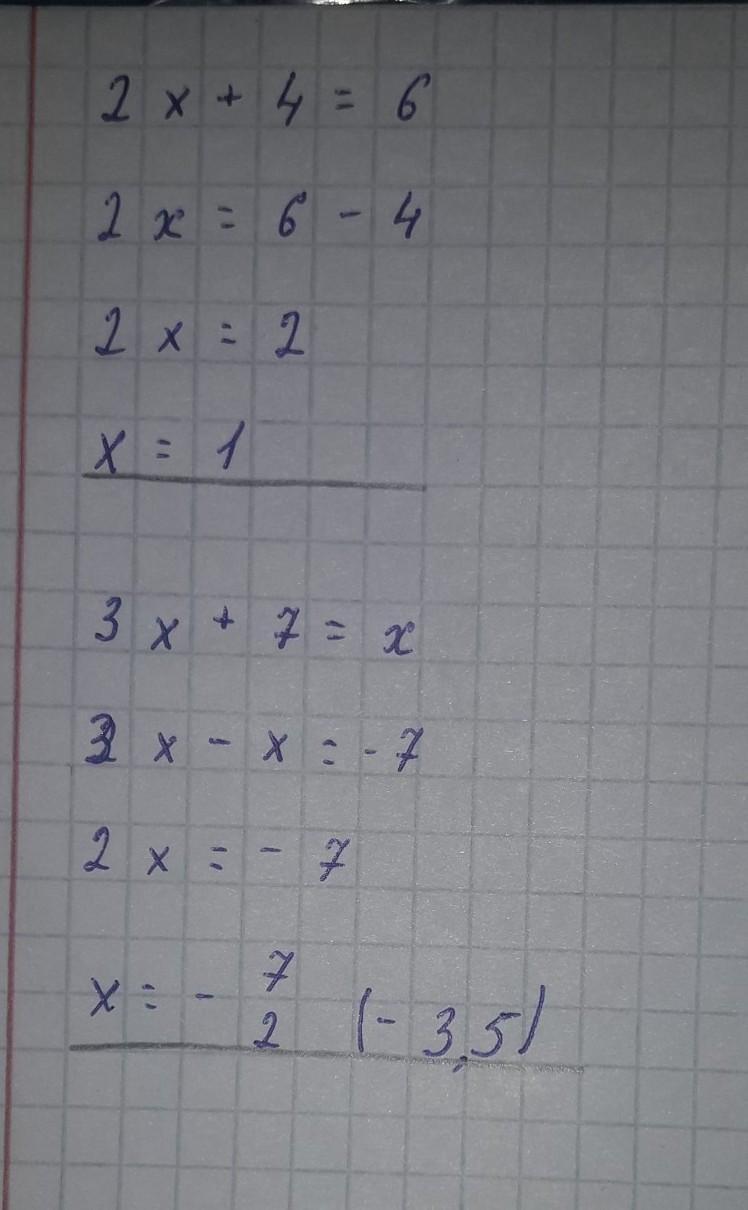 2x + 4 = 6
2x = 6 - 4
2x = 2
x = 1
3x + 7 = x
3x - x = -7
2x = -7
x = - 7/2 (- 3,5)